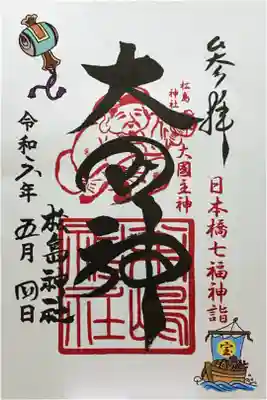 参拝
日本橋七福神詣
松島
神社
大國主神
大国神
松島神社
令和六年 五月 四日
宝